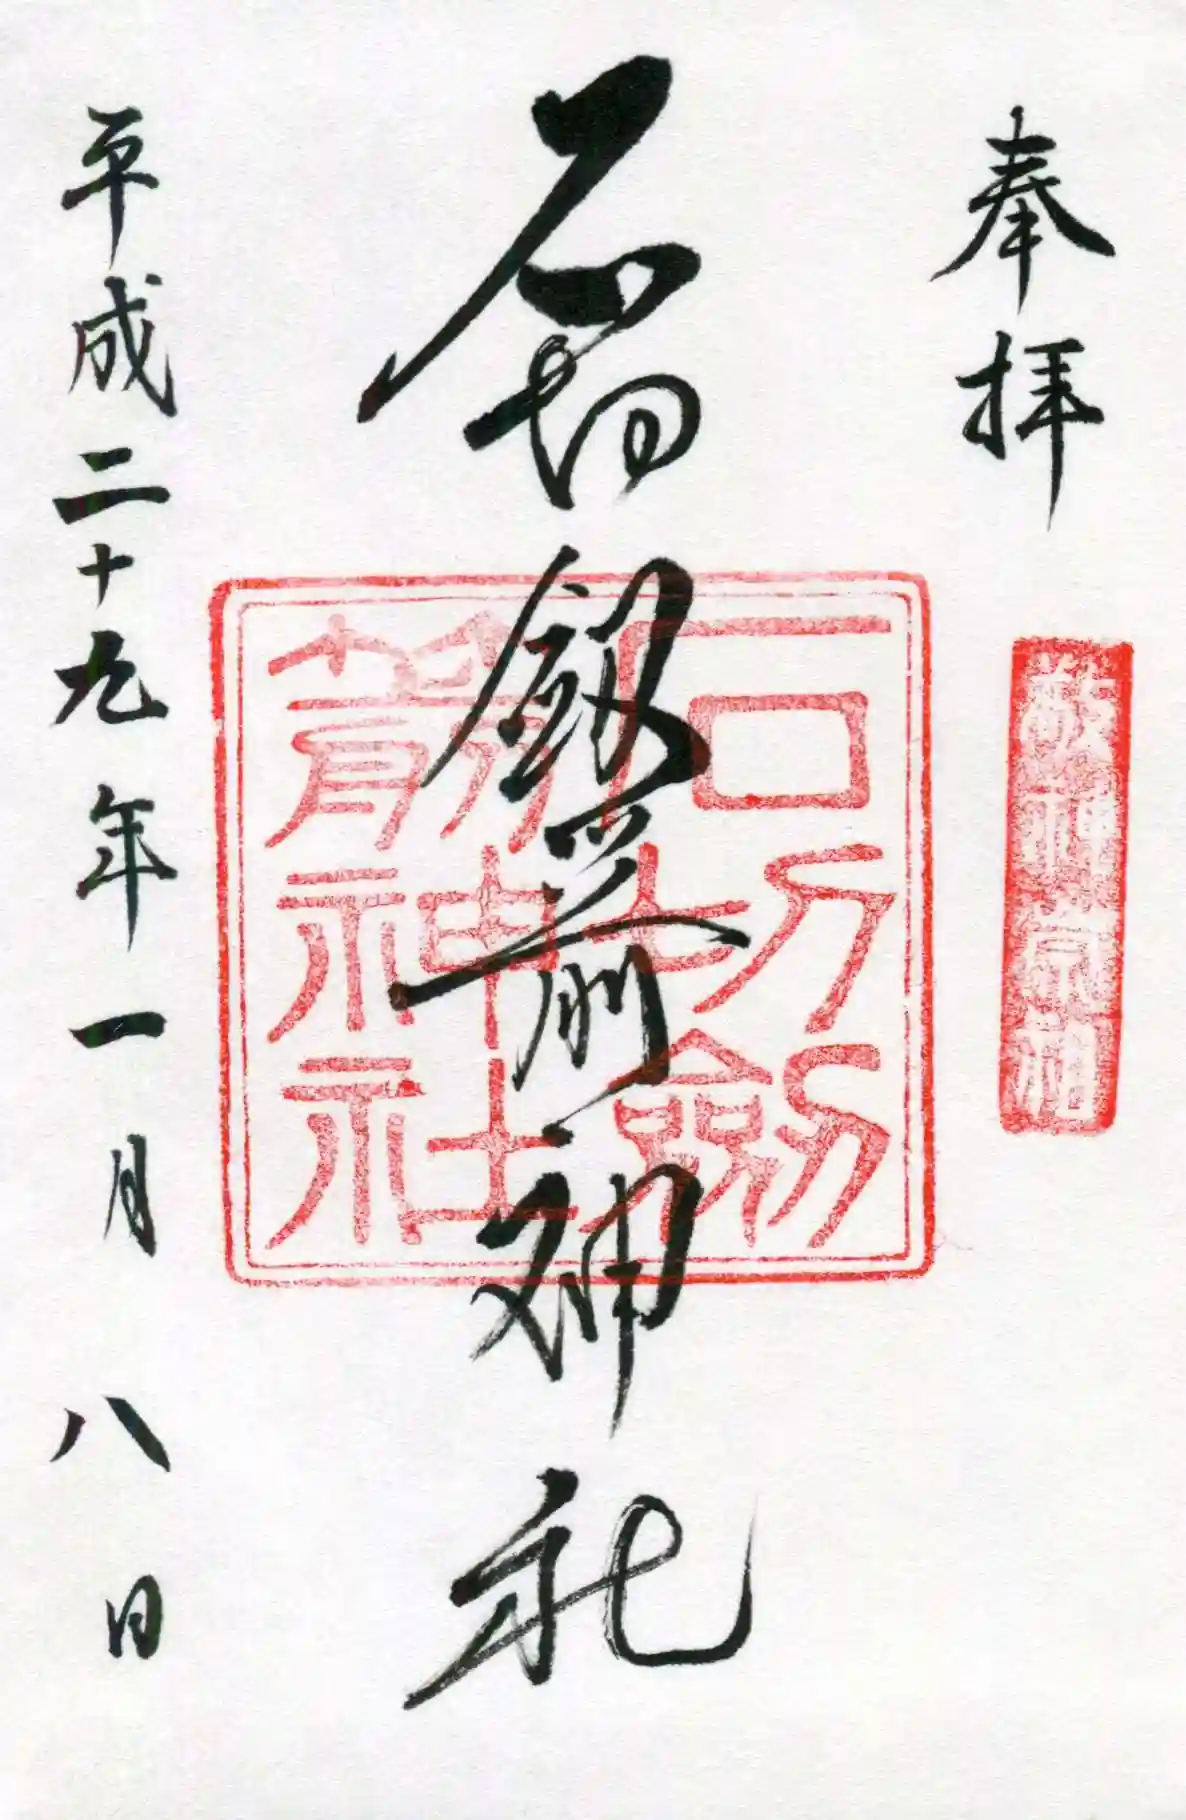 奉拝
敬神崇祖
石切劔箭神社
石切劔
箭神社
平成二十九年一月八日